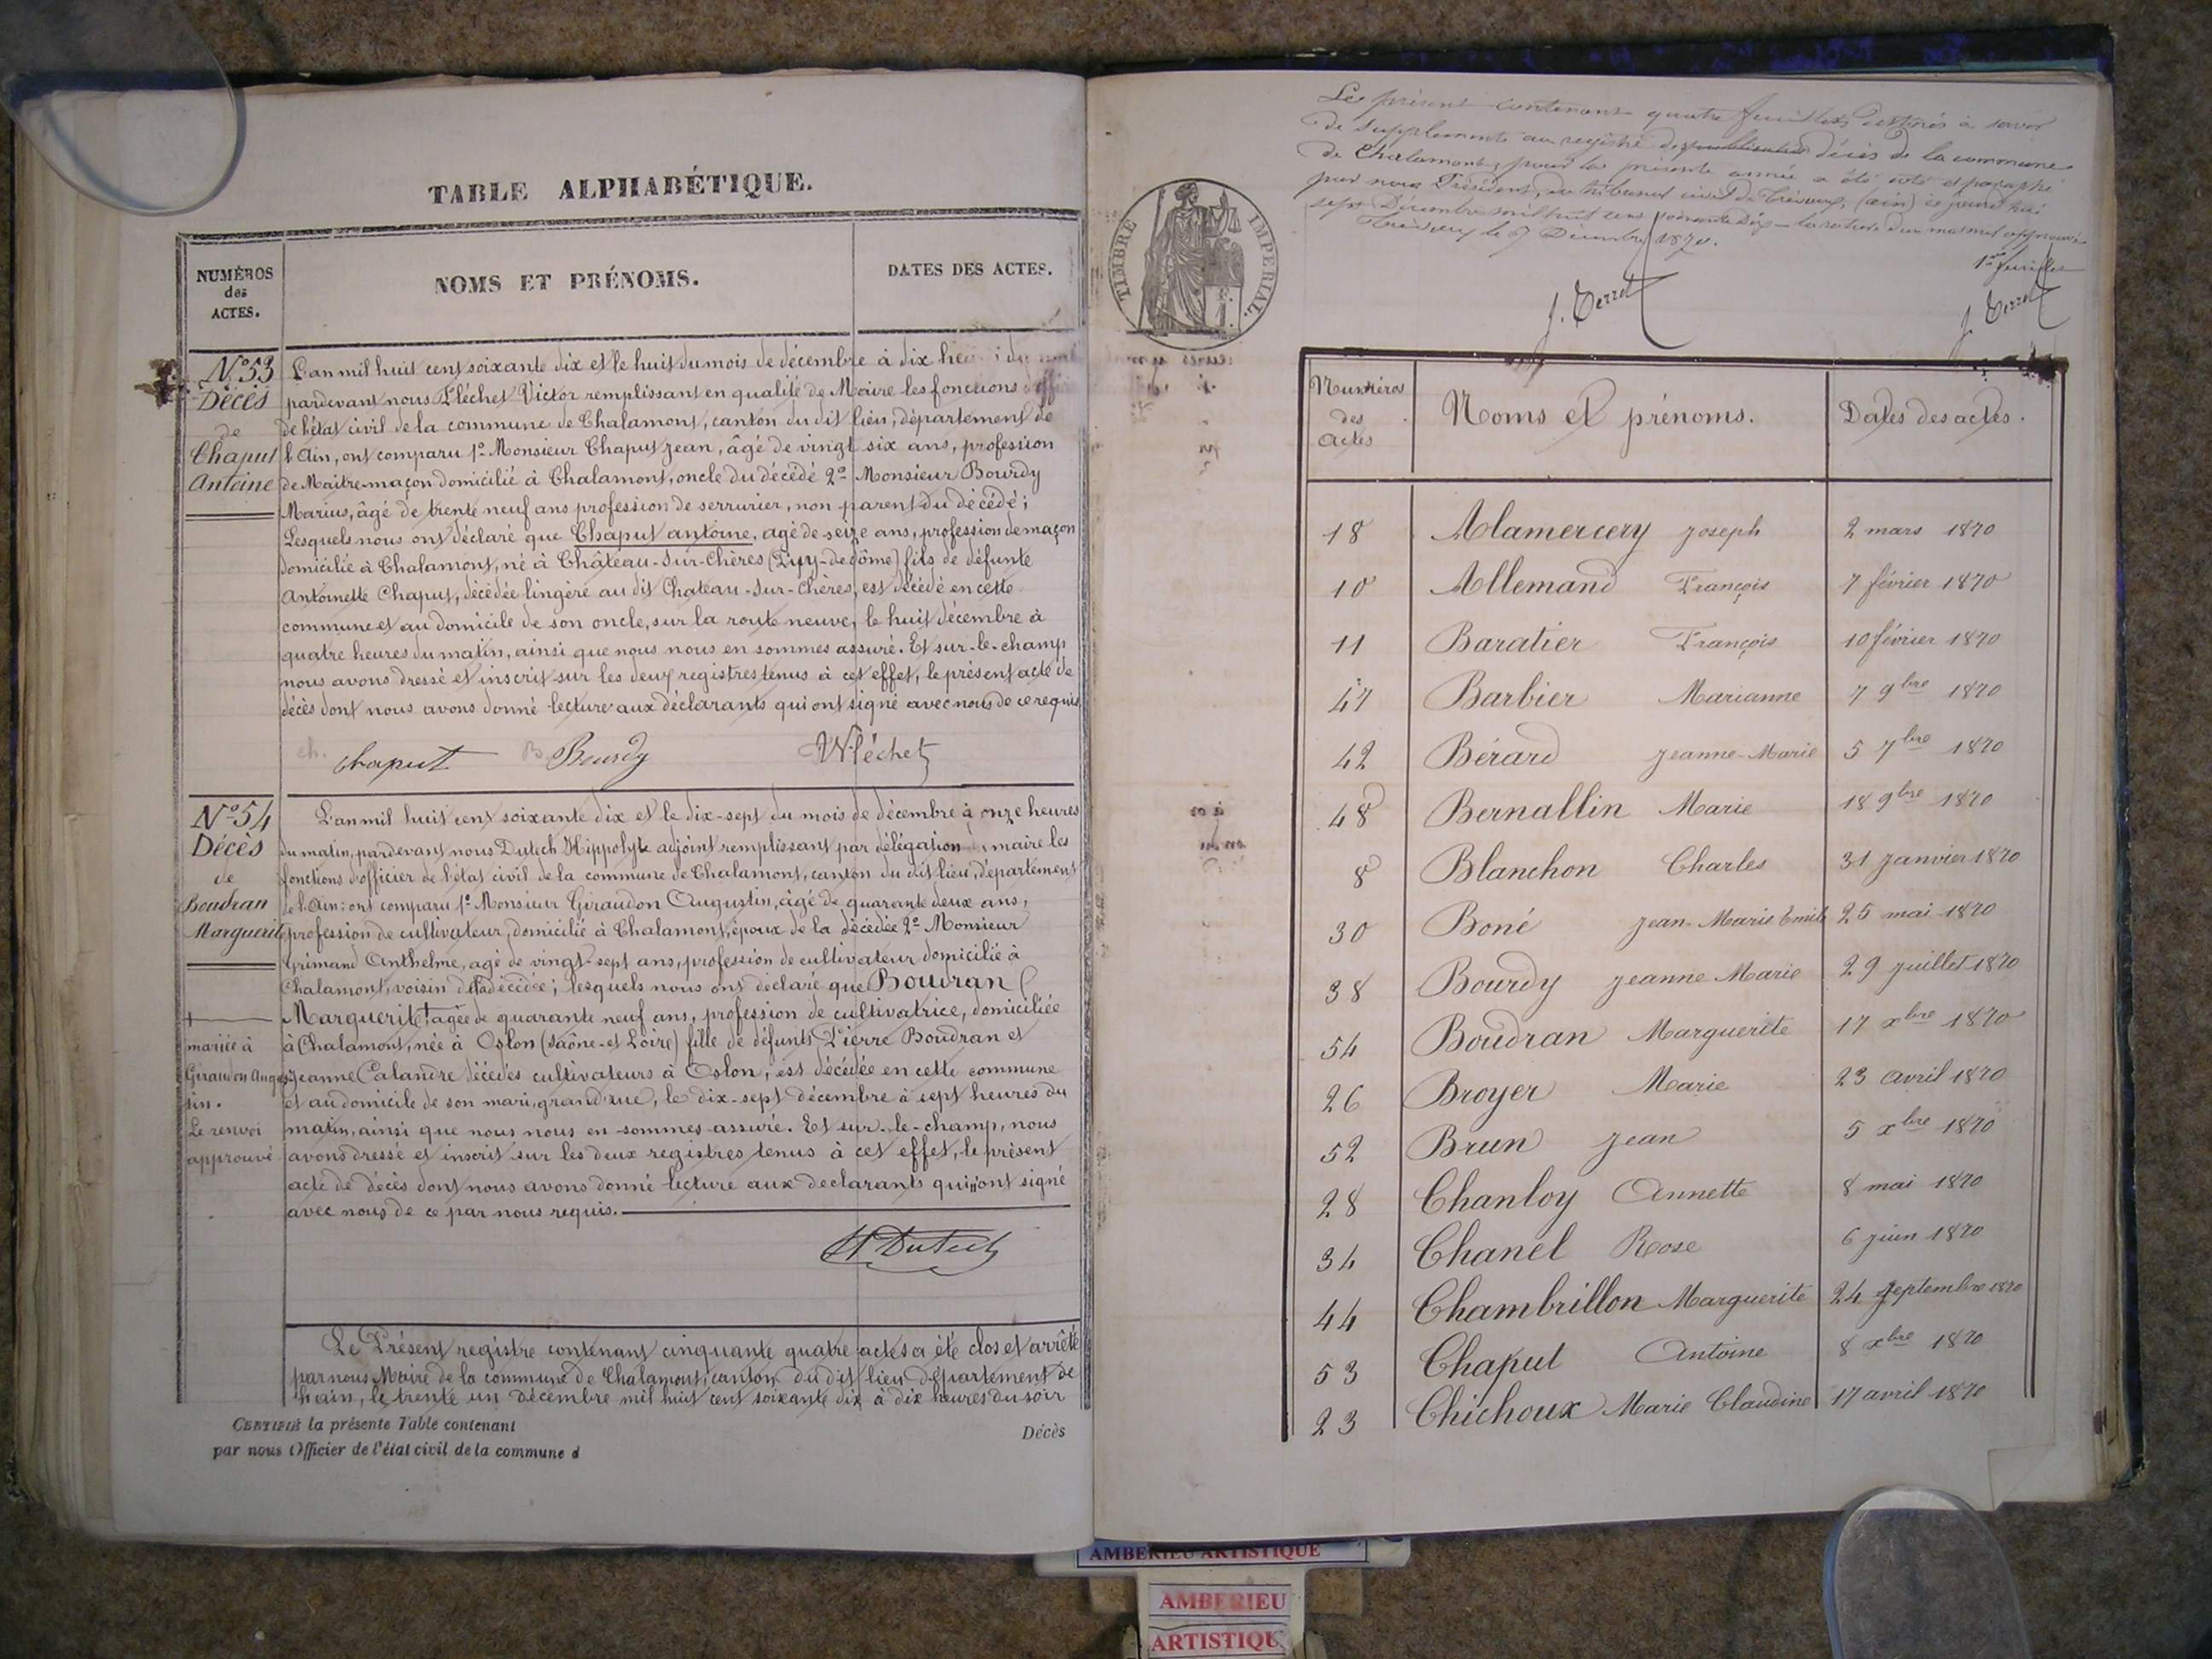 TABLE ALPHABÉTIQUE.
NUMÉROS
des
ACTES.
NOMS ET PRÉNOMS.
DATES DES ACTES.
N°53
Décès
de
Chaput
Antoine
L'an mil huit cent soixante dix et le huit du mois de décembre à dix du
pardevant nous Fléchet Victor remplissant en qualité de Maire les fonctions
de l'état civil de la commune de Chalamont, canton du dit lieu, département de
l'Ain, ont comparu 1° Monsieur Chaput Jean, âgé de vingt six ans, profession
de Maître-maçon domicilié à Chalamont, oncle du décédé 2° Monsieur Bourdy
Marius, âgé de trente neuf ans profession de serrurier, non parent du décédé;
Lesquels nous ont déclaré que Chaput antoine, agé de seize ans, profession de maçon
domicilié à Chalamont, né à Château-sur-Chères (Puy-de-dôme) fils de défunte
Antoinette Chaput, décédée lingère au dit Chateau-sur-Chères, est décédé en cette
commune et au domicile de son oncle, sur la route neuve, le huit décembre à
quatre heures du matin, ainsi que nous nous en sommes assuré. Et sur-le-champ
nous avons dressé et inscrit sur les deux registres tenus à cet effet, le présent acte de
décès dont nous avons donné lecture aux déclarants qui ont signé avec nous de ce requis
chaput Bourdy V Fléchet
N°54
Décès
de
Boudran
Marguerite
mariée à
Giraudon Augus
tin.
Le renvoi
approuvé
L'an mil huit cent soixante dix et le dix-sept du mois de décembre à onze heures
du matin, pardevant nous Dutech Hippolyte adjoint remplissant par délégation maire les
fonctions d'officier de l'état civil de la commune de Chalamont, canton du dit lieu, département
de l'Ain: ont comparu 1° Monsieur Giraudon Augustin, âgé de quarante deux ans,
profession de cultivateur, domicilié à Chalamont, époux de la décédée 2° Monsieur
Grimand Anthelme, agé de vingt-sept ans, profession de cultivateur domicilié à
Chalamont, voisin de la décédée; lesquels nous ont déclaré que Boudran
Marguerite, agée de quarante neuf ans, profession de cultivatrice, domiciliée
à Chalamont, née à Oslon (Saône-et Loire) fille de défunts Pierre Boudran et
Jeanne Calandre décédés cultivateurs à Oslon, est décédée en cette commune
et au domicile de son mari, grand'rue, le dix-sept décembre à sept heures du
matin, ainsi que nous nous en sommes assuré. Et sur-le-champ, nous
avons dressé et inscrit sur les deux registres tenus à cet effet, le présent
acte de décès dont nous avons donné lecture aux declarants qui n'ont signé
avec nous de ce par nous requis.
H Dutech
Le Présent registre contenant cinquante quatre actes a été clos et arrêté
par nous Maire de la commune de Chalamont, canton du dit lieu département de
l'ain, le trente un décembre mil huit cent soixante dix à dix heures du soir
CERTIFIÉ la présente Table contenant
Décès
par nous Officier de l'état civil de la commune d
Le présent contenant quatre feuillets destinés à servir
de supplément au registre de publication décès de la commune
de Chalamont, pour la présente année a été coté et paraphé
par nous Président du tribunal civil de Trévoux, (ain) ce jourd'hui
sept Décembre mil huit cent soixante dix - la rature d'un mot nul approuvée
Trévoux le 7 Décembre 1870.
1er feuillet
J. Perret
J. Perret
TIMBRE IMPÉRIAL.
Numéros
des
actes
Noms et prénoms.
Dates des actes.
18 Alamercery Joseph 2 mars 1870
10 Allemand François 7 février 1870
11 Baratier François 10 février 1870
47 Barbier Marianne 7 9bre 1870
42 Bérard Jeanne-Marie 5 7bre 1870
48 Bernallin Marie 18 9bre 1870
8 Blanchon Charles 31 Janvier 1870
30 Boné Jean-Marie Emile 25 mai 1870
38 Bourdy Jeanne Marie 29 juillet 1870
54 Boudran Marguerite 17 xbre 1870
26 Broyer Marie 23 avril 1870
52 Brun Jean 5 xbre 1870
28 Chanloy Annette 8 mai 1870
34 Chanel Rose 6 juin 1870
44 Chambrillon Marguerite 24 septembre 1870
53 Chaput Antoine 8 xbre 1870
23 Chichoux Marie Claudine 17 avril 1870
AMBERIEU ARTISTIQUE
AMBERIEU
ARTISTIQU